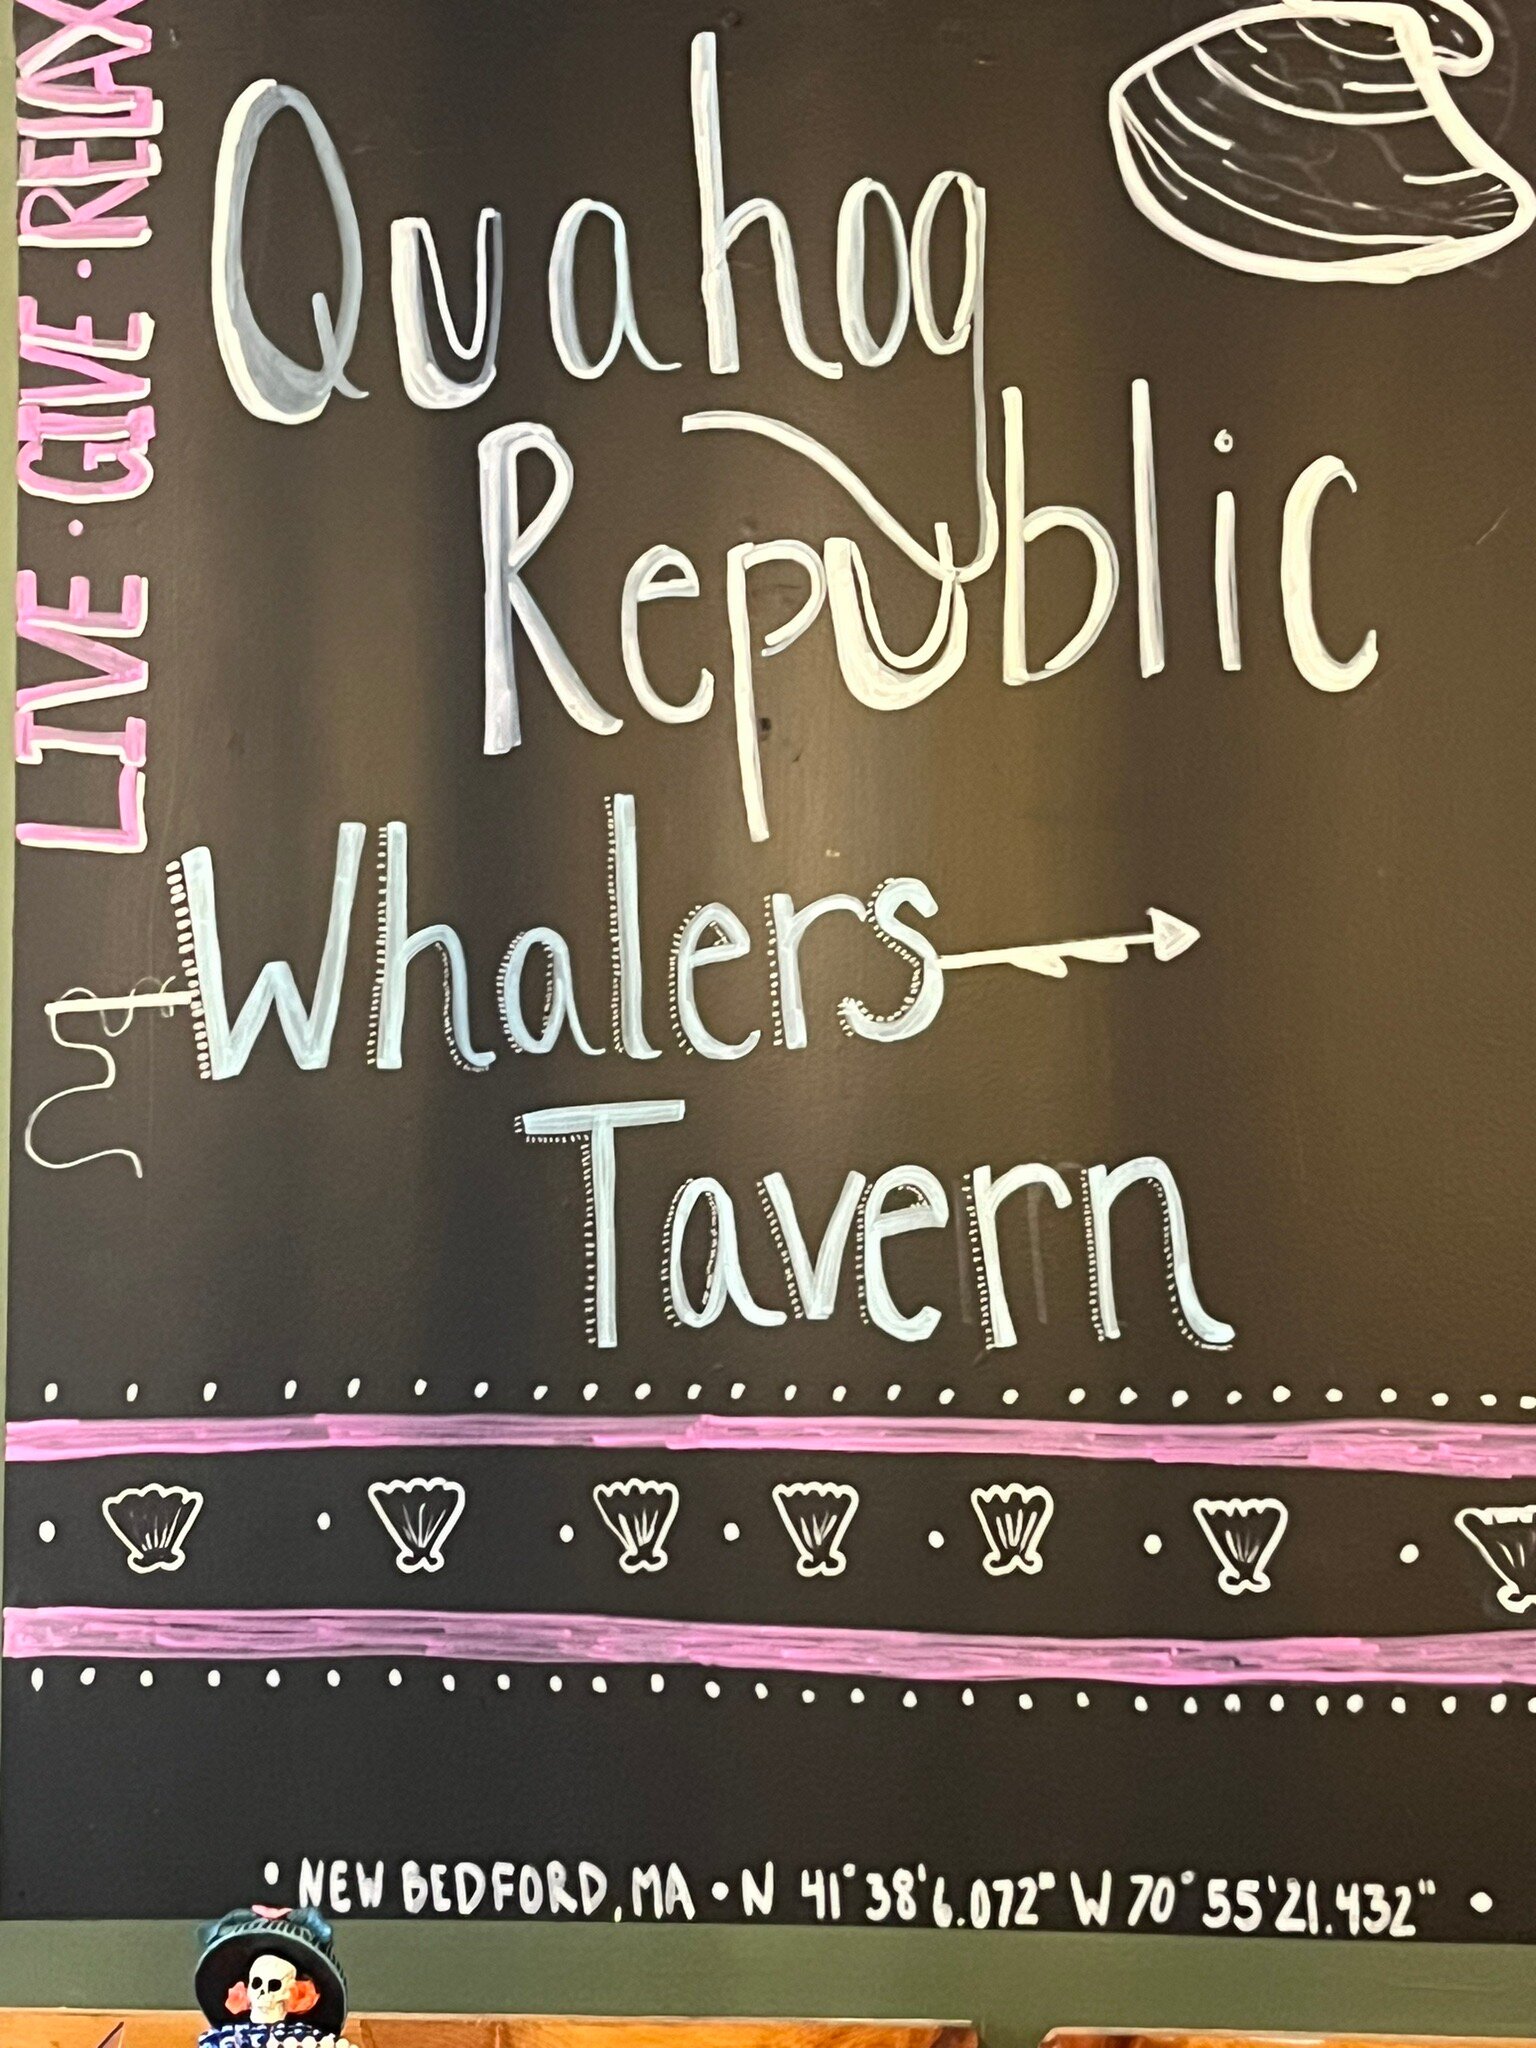 LIVE · GIVE · RELAX
Quahog
Republic
Whalers
Tavern
• NEW BEDFORD, MA • N 41° 38' 6.072" W 70° 55' 21.432" •